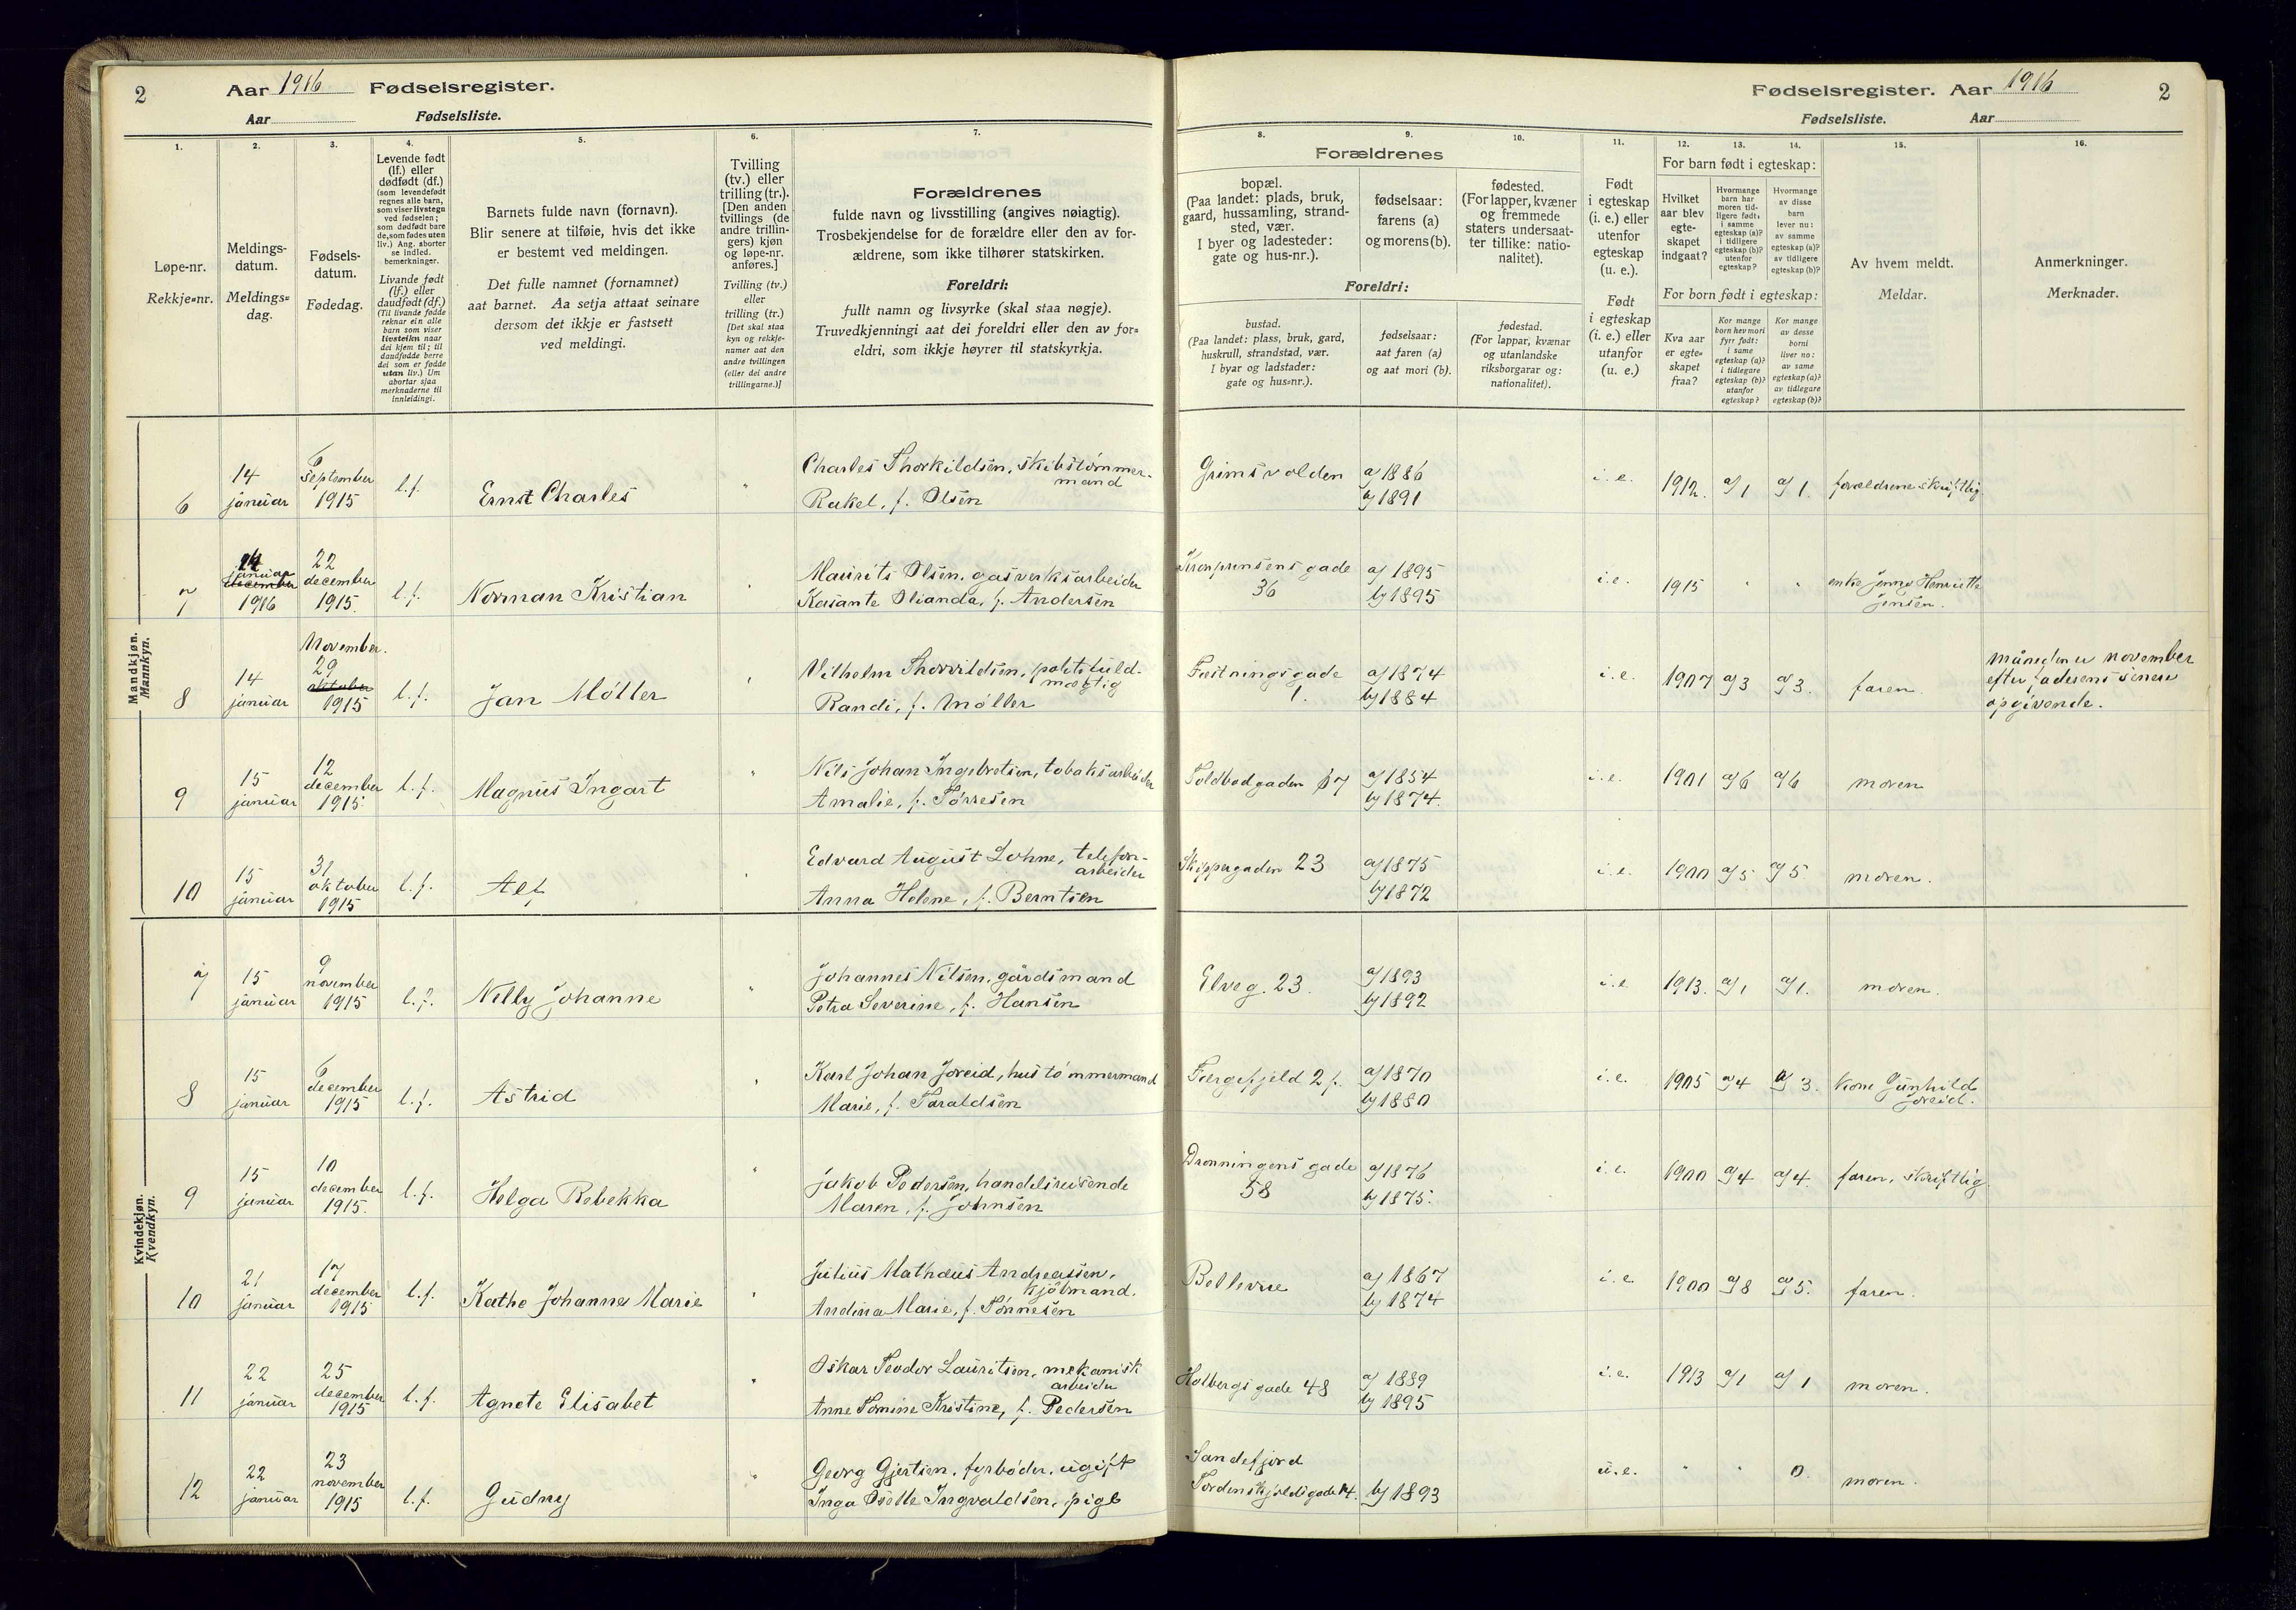 2
Aar 1916 Fødselsregister.
Aar Fødselsliste.
1.
2.
3.
4.
5.
6.
7.
Løpe-nr.
Rekkje=nr.
Meldings-
datum.
Meldings=
dag.
Fødsels-
datum.
Fødedag.
Levende født
(lf.) eller
dødfødt (df.)
(som levendefødt
regnes alle barn,
som viser livstegn
ved fødselen;
som dødfødt bare
de, som fødes uten
liv.) Ang. aborter
se indled.
bemerkninger.
Livande født
(lf.) eller
daudfødt (df.)
(Til livande fødde
reknar ein alle
barn som viser
livsteikn naar
dei kjem til; til
daudfødde berre
dei som er fødde
utan liv.) Um
abortar sjaa
merknaderne til
innleidingi.
Barnets fulde navn (fornavn).
Blir senere at tilføie, hvis det ikke
er bestemt ved meldingen.
Det fulle namnet (fornamnet)
aat barnet. Aa setja attaat seinare
dersom det ikkje er fastsett
ved meldingi.
Tvilling
(tv.) eller
trilling (tr.).
[Den anden
tvillings (de
andre trillin-
gers) kjøn
og løpe-nr.
anføres.]
Tvilling (tv.)
eller
trilling (tr.)
[Det skal staa
kyn og rekkje-
numer aat den
andre tvillingen
(eller dei andre
trillingarne.)]
Forældrenes
fulde navn og livsstilling (angives nøiagtig).
Trosbekjendelse for de forældre eller den av for-
ældrene, som ikke tilhører statskirken.
Foreldri:
fullt namn og livsyrke (skal staa nøgje).
Truvedkjenningi aat dei foreldri eller den av for=
eldri, som ikkje høyrer til statskyrkja.
Mandkjøn.
Mannkyn.
6
14
januar
6
september
1915
l.f.
Ernst Charles
"
Charles Thorkildsen, skibstømmer-
mand
Rakel, f. Olsen
7
14
januar
december
1916
22
december
1915.
l.f.
Norman Kristian
"
Maurits Olsen, gasverksarbeider
Kasante Olianda, f. Andersen
8
14
januar
November.
29
oktober
1915
l.f.
Jan Møller
"
Vilhelm Thorvildsen, politifuld-
mægtig
Randi, f. Møller
9
15
januar
12
december
1915.
l.f.
Magnus Ingart
"
Nils Johan Ingebretsen, tobaksarbeider
Amalie, f. Tørresen
10
15
januar
31
oktober
1915
l.f.
Alf
"
Edvard August Lohne, telefon-
arbeider
Anna Helene, f. Berntsen
Kvindekjøn.
Kvendkyn.
7
15
januar
9
november
1915
l.f.
Nelly Johanne
"
Johannes Nilsen, gårdsmand
Petra Severine, f. Hansen
8
15
januar
6
december
1915
l.f.
Astrid
"
Karl Johan Joreid, hustømmermand
Marie, f. Taraldsen
9
15
januar
10
december
1915.
l.f.
Helga Rebekka
"
Jakob Pedersen, handelsreisende
Maren, f. Johnsen
10
21
januar
17
december
1915
l.f.
Kathe Johanne Marie
"
Julius Mathæus Andreassen,
kjøbmand.
Andina Marie, f. Tønnesen
11
22
januar
25
december
1915
l.f.
Agnete Elisabet
"
Oskar Teodor Lauritsen, mekanisk
arbeider
Anne Tomine Kristine, f. Pedersen
12
22
januar
23
november
1915
l.f.
Gudny
"
Georg Gjertsen, fyrbøder, ugift
Inga Osette Ingvaldsen, pige
Fødselsregister. Aar 1916
2
Fødselsliste. Aar
8.
9.
10.
11.
12.
13.
14.
15.
16.
Forældrenes
bopæl.
(Paa landet: plads, bruk,
gaard, hussamling, strand-
sted, vær.
I byer og ladesteder:
gate og hus-nr.).
fødselsaar:
farens (a)
og morens (b).
fødested.
(For lapper, kvæner
og fremmede
staters undersaat-
ter tillike: natio-
nalitet).
Foreldri:
bustad.
(Paa landet: plass, bruk, gard,
huskrull, strandstad, vær.
I byar og ladstader:
gate og hus=nr.).
fødselsaar:
aat faren (a)
og aat mori (b).
fødestad.
(For lappar, kvænar
og utanlandske
riksborgarar og:
nationalitet).
Født
i egteskap
(i. e.) eller
utenfor
egteskap
(u. e.).
Født
i egteskap
(i. e.) eller
utanfor
(u. e.)
For barn født i egteskap:
Hvilket
aar blev
egte-
skapet
indgaat?
Hvormange
barn har
moren tid-
ligere født:
i samme
egteskap (a)?
i tidligere
egteskap (b)?
utenfor
egteskap?
Hvormange
av disse
barn
lever nu:
av samme
egteskap (a)?
av tidligere
egteskap (b)?
For born født i egteskap:
Kva aar
er egte=
skapet
fraa?
Kor mange
born hev mori
fyrr født:
i same
egteskap (a)?
i tidlegare
egteskap (b)?
utanfor
egteskap?
Kor mange
av desse
borni
liver no:
av same
egteskap (a)?
av tidlegare
egteskap (b)?
Av hvem meldt.
Meldar.
Anmerkninger.
Merknader.
Grimsvolden
a) 1886
b) 1891
i. e.
1912.
a) 1
a) 1.
forældrene skriftlig
Kronprinsens gade
36
a) 1895
b) 1895
i. e.
1915
"
"
enke Jenny Henriette
Jensen.
Fæstningsgade
1.
a) 1874
b) 1884
i. e.
1907
a) 3
a) 3.
faren.
måneden er november
efter faderens senere
opgivende.
Toldbodgaden 17
a) 1854
b) 1874.
i. e.
1901
a) 6
a) 6
moren
Skippergaden 23
a) 1875
b) 1872
i. e.
1900
a) 5
a) 5
moren.
Elveg. 23.
a) 1893
b) 1892
i. e
1913.
a) 1
a) 1.
moren.
Færgefjeld 2 f.
a) 1870
b) 1880
i. e.
1905
a) 4
a) 3.
kone Gunhild
Joreid.
Dronningens gade
58
a) 1876
b) 1875.
i. e.
1900
a) 4
a) 4.
faren, skriftlig
Bellevue
a) 1867
b) 1874
i. e
1900
a) 8
a) 5.
faren.
Holbergs gade 48
a) 1889
b) 1895
i. e.
1913
a) 1
a) 1
moren.
Sandefjord
Tordenskjoldsgade 14.
b) 1893
u. e.
"
"
0.
moren.